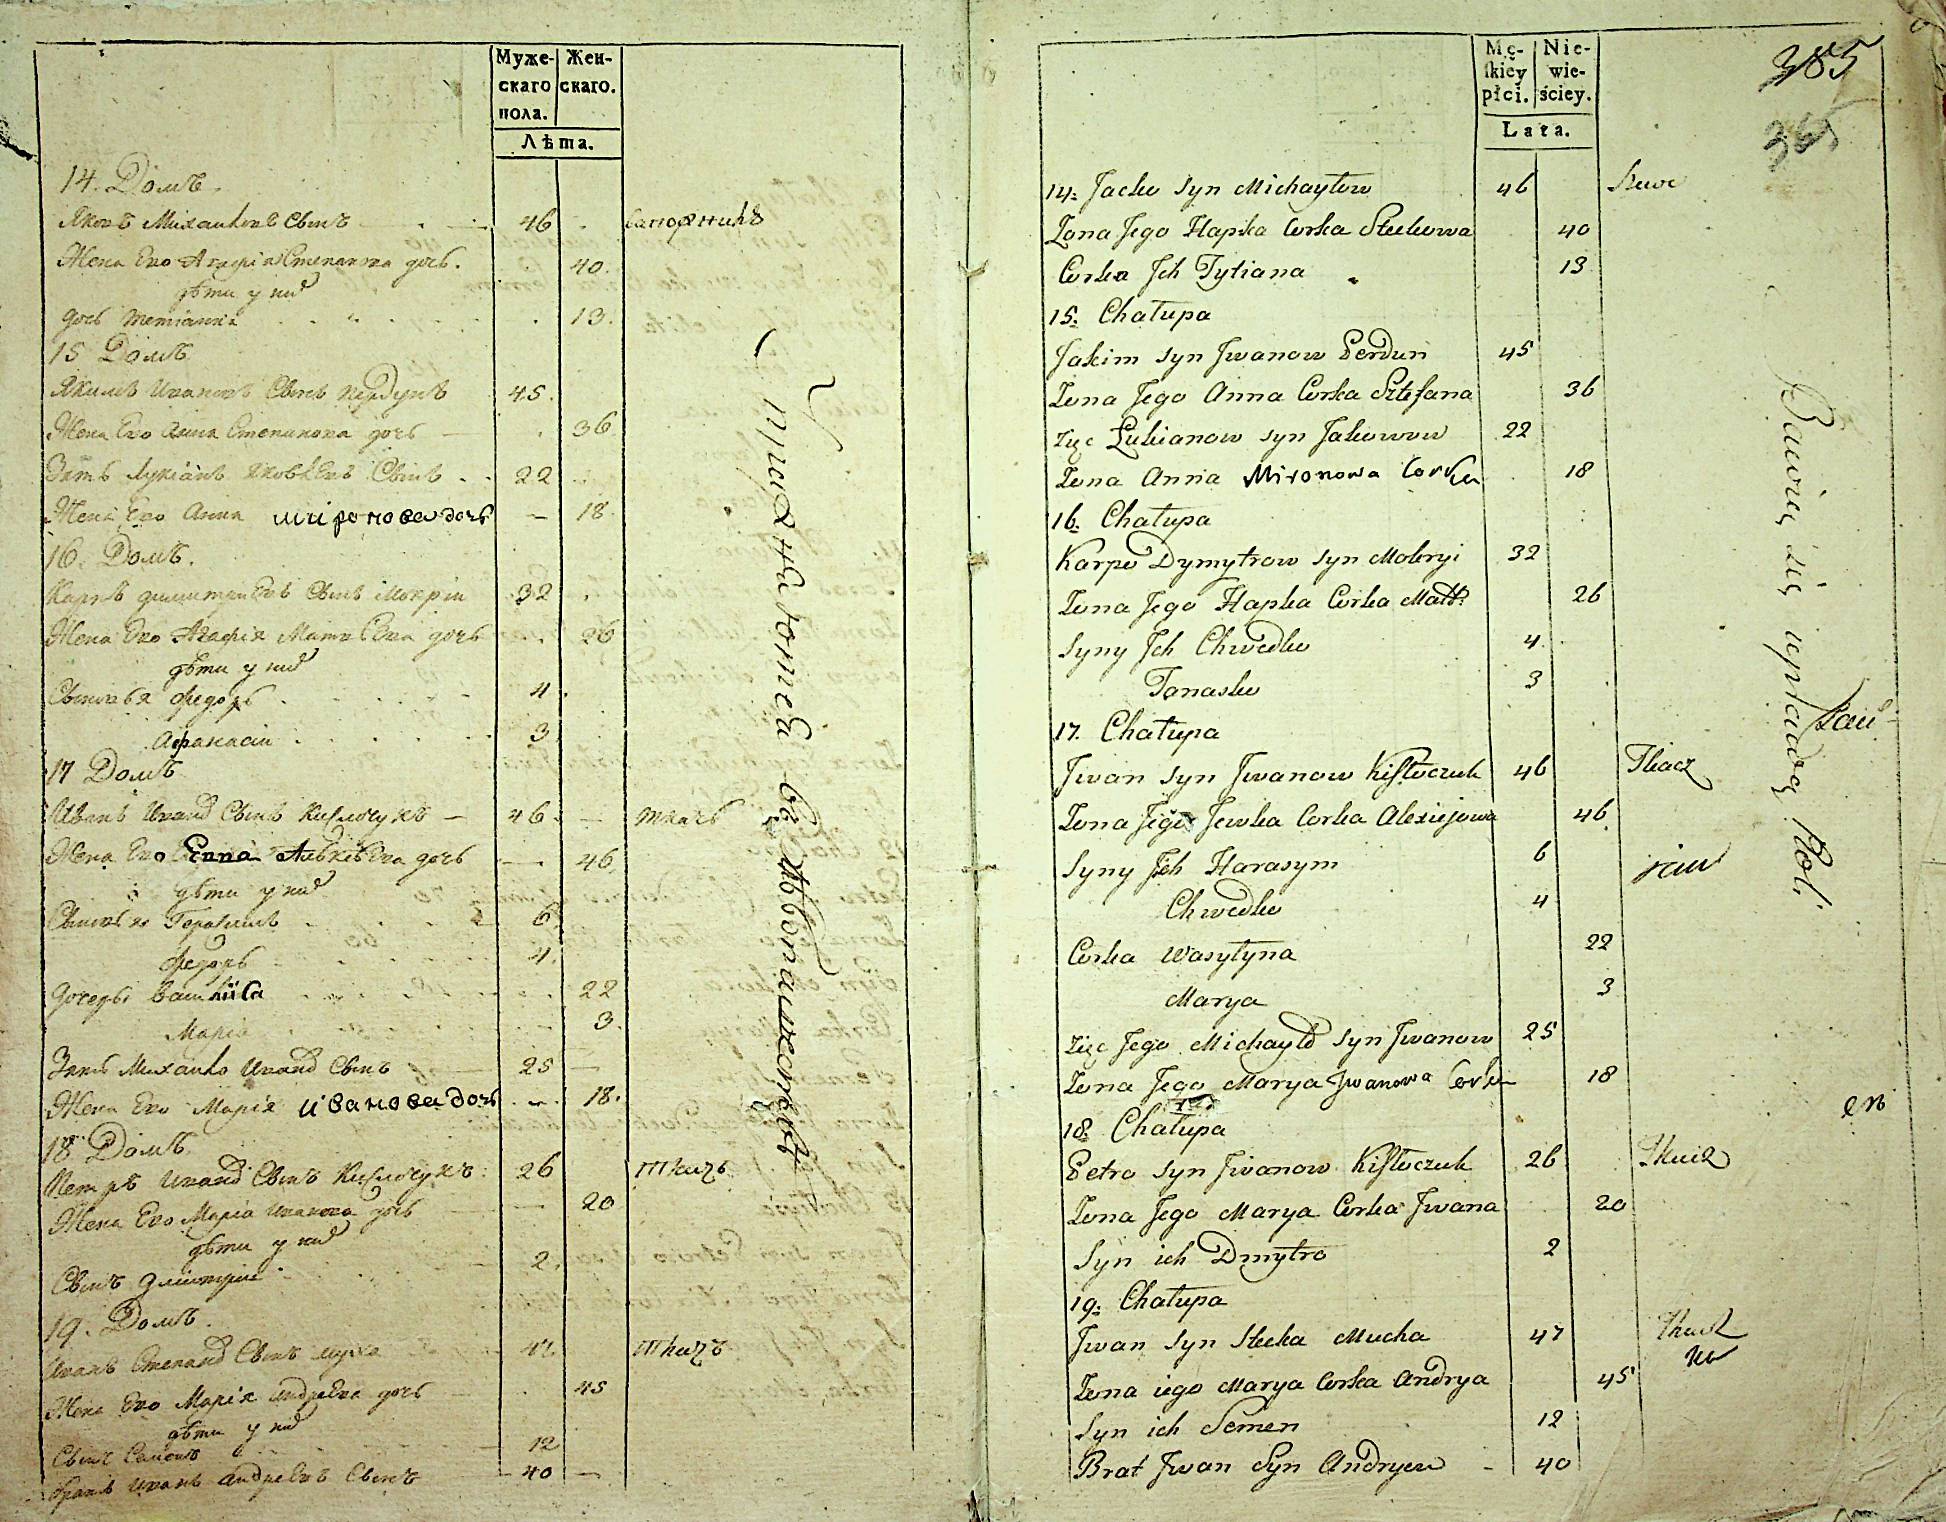 Муже-
скаго
пола.
Жен-
скаго.
Лѣта.
14. Домъ.
Яковъ Михайловъ Сынъ 46 сапожникъ
Жена Его Агафія Степанова дочь. 40.
дѣти у них
дочь Тетіанна 13.
15 Домъ
Якимъ Ивановъ Сынъ Пердунъ 45.
Жена Его Анна Степанова дочь 36
Зять Лукіанъ Яковлевъ Сынъ 22
Жена Его Анна миронова дочь 18
16. Домъ.
Карпъ димитріевъ Сынъ Мокрій 32
Жена Его Агафія Матвѣева дочь 26
дѣти у них
Сыновья Федоръ 4
Афанасій 3
17 Домъ
Иванъ Иванов Сынъ Кислючукъ 46 ткачь
Жена Его Евва Алексѣева дочь 46
дѣти у них
Сыновья Герасимъ 6
Федоръ 4.
дочери Василиса 22
Марія 3.
Зять Михайло Иванов Сынъ 25
Жена Его Марія иванова дочь 18.
18 Домъ
Петръ Иванов Сынъ Кислючукъ 26 ткачь
Жена Его Марія Иванова дочь 20
дѣти у них
Сынъ Дмитрій 2.
19. Домъ.
Иванъ Степанов Сынъ муха 47 ткачъ
Жена Его Марія Андреева дочь 45
дѣти у них
Сынъ Семенъ 12
братъ Иванъ Андреевъ Сынъ 40
упражняются въ хлѣбопашествѣ
Mę-
skiey
płci.
Nie-
wie-
ściey.
Lata.
385
365
14. Jacko syn Michayłow 46 Szewc
Żona Jego Hapka Corka Steckowa 40
Corka Jch Tytiana 13
15. Chałupa
Jakim syn Jwanow Perdun 45
Żona Jego Anna Corka Sztefana 36
zięc Łukianow syn Jakowow 22
Żona Anna Mironowa Corka 18
16. Chałupa
Karpo Dymytrow syn Mokryi 32
Żona Jego Hapka Corka Matt: 26
Syny Jch Chwedko 4
Tanasko 3
17. Chałupa
Jwan syn Jwanow Kisluczuk 46 Tkacz
Żona Jego Jewka Corka Alexiejowa 46
Syny Jch Harasym 6
Chwedko 4
Corka Wasyłyna 22
Marya 3
zięc Jego Michayło syn Jwanow 25
Żona Jego Marya Jwanowa Corka 18
18. Chałupa
Petro syn Jwanow Kisluczuk 26 Tkacz
Żona Jego Marya Corka Jwana 20
Syn ich Dmytro 2
19. Chałupa
Jwan syn Stecka Mucha 47 Tkacz
Żona iego Marya Corka Andrya 45
Syn ich Semen 12
Brat Jwan Syn Andryew 40
Bawią się uprawą Roli